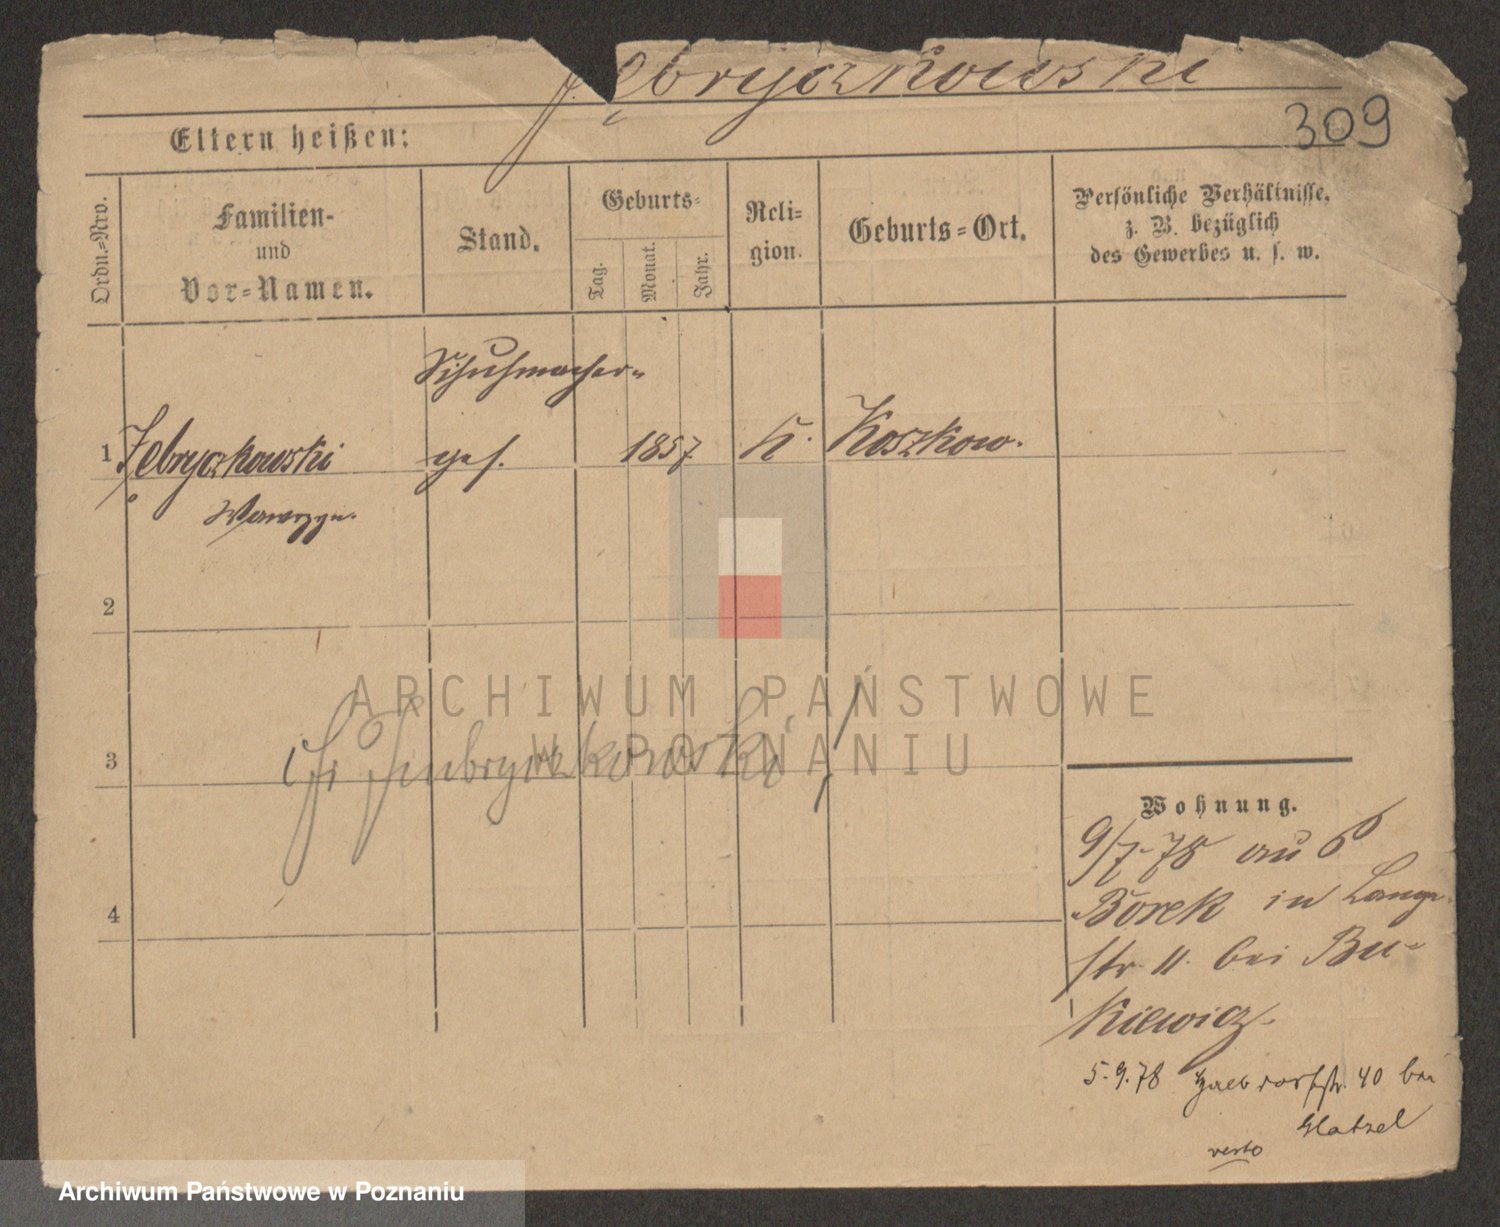 Jębryczkowski
309
Eltern heißen:
Ordn.=Nro.
Familien-
und
Vor=Namen.
Stand.
Geburts=
Tag.
Monat.
Jahr.
Reli=
gion.
Geburts=Ort.
Persönliche Verhältnisse,
z. B. bezüglich
des Gewerbes u. s. w.
Schuhmacher=
1 Jębryczkowski ges. 1857 K. Koszkow.
Wawrzyn.
2
3
4
Wohnung.
9/7.78 aus
Borek in Lange
str. 11. bei Bu=
kiewicz.
5.9.78 Halbdorfstr. 40 bei
Glatzel
verso
ARCHIWUM PAŃSTWOWE
W POZNANIU
Archiwum Państwowe w Poznaniu